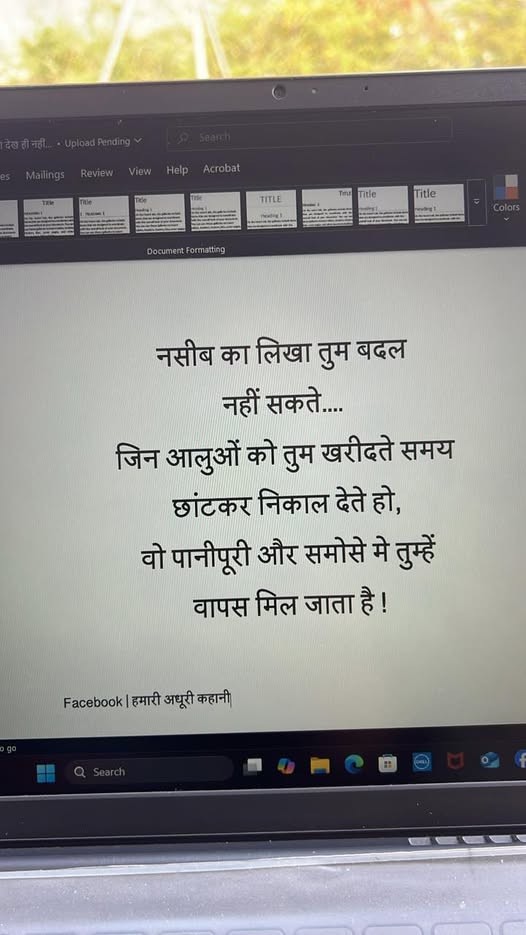 देख ही नहीं... • Upload Pending
Search
Mailings Review View Help Acrobat
Title Title Title Title TITLE Title Title Title
Colors
Document Formatting
नसीब का लिखा तुम बदल
नहीं सकते....
जिन आलुओं को तुम खरीदते समय
छांटकर निकाल देते हो,
वो पानीपूरी और समोसे मे तुम्हें
वापस मिल जाता है !
Facebook | हमारी अधूरी कहानी
o go
Search
DELL